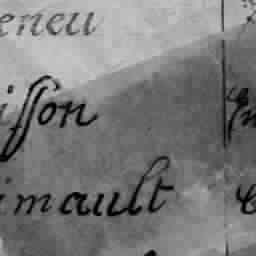 eneu
isson
imault